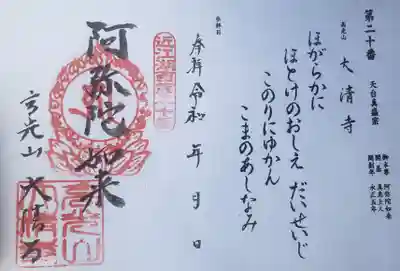 第二十番
天台真盛宗
御本尊 阿弥陀如来
開基 真盛上人
開創年 永正五年
大清寺
ほがらかに
ほとけのおしえ だいせいじ
このりにゆかん
こまのあしなみ
参拝日
奉拝 令和 年 月 日
阿弥陀如来
大清寺